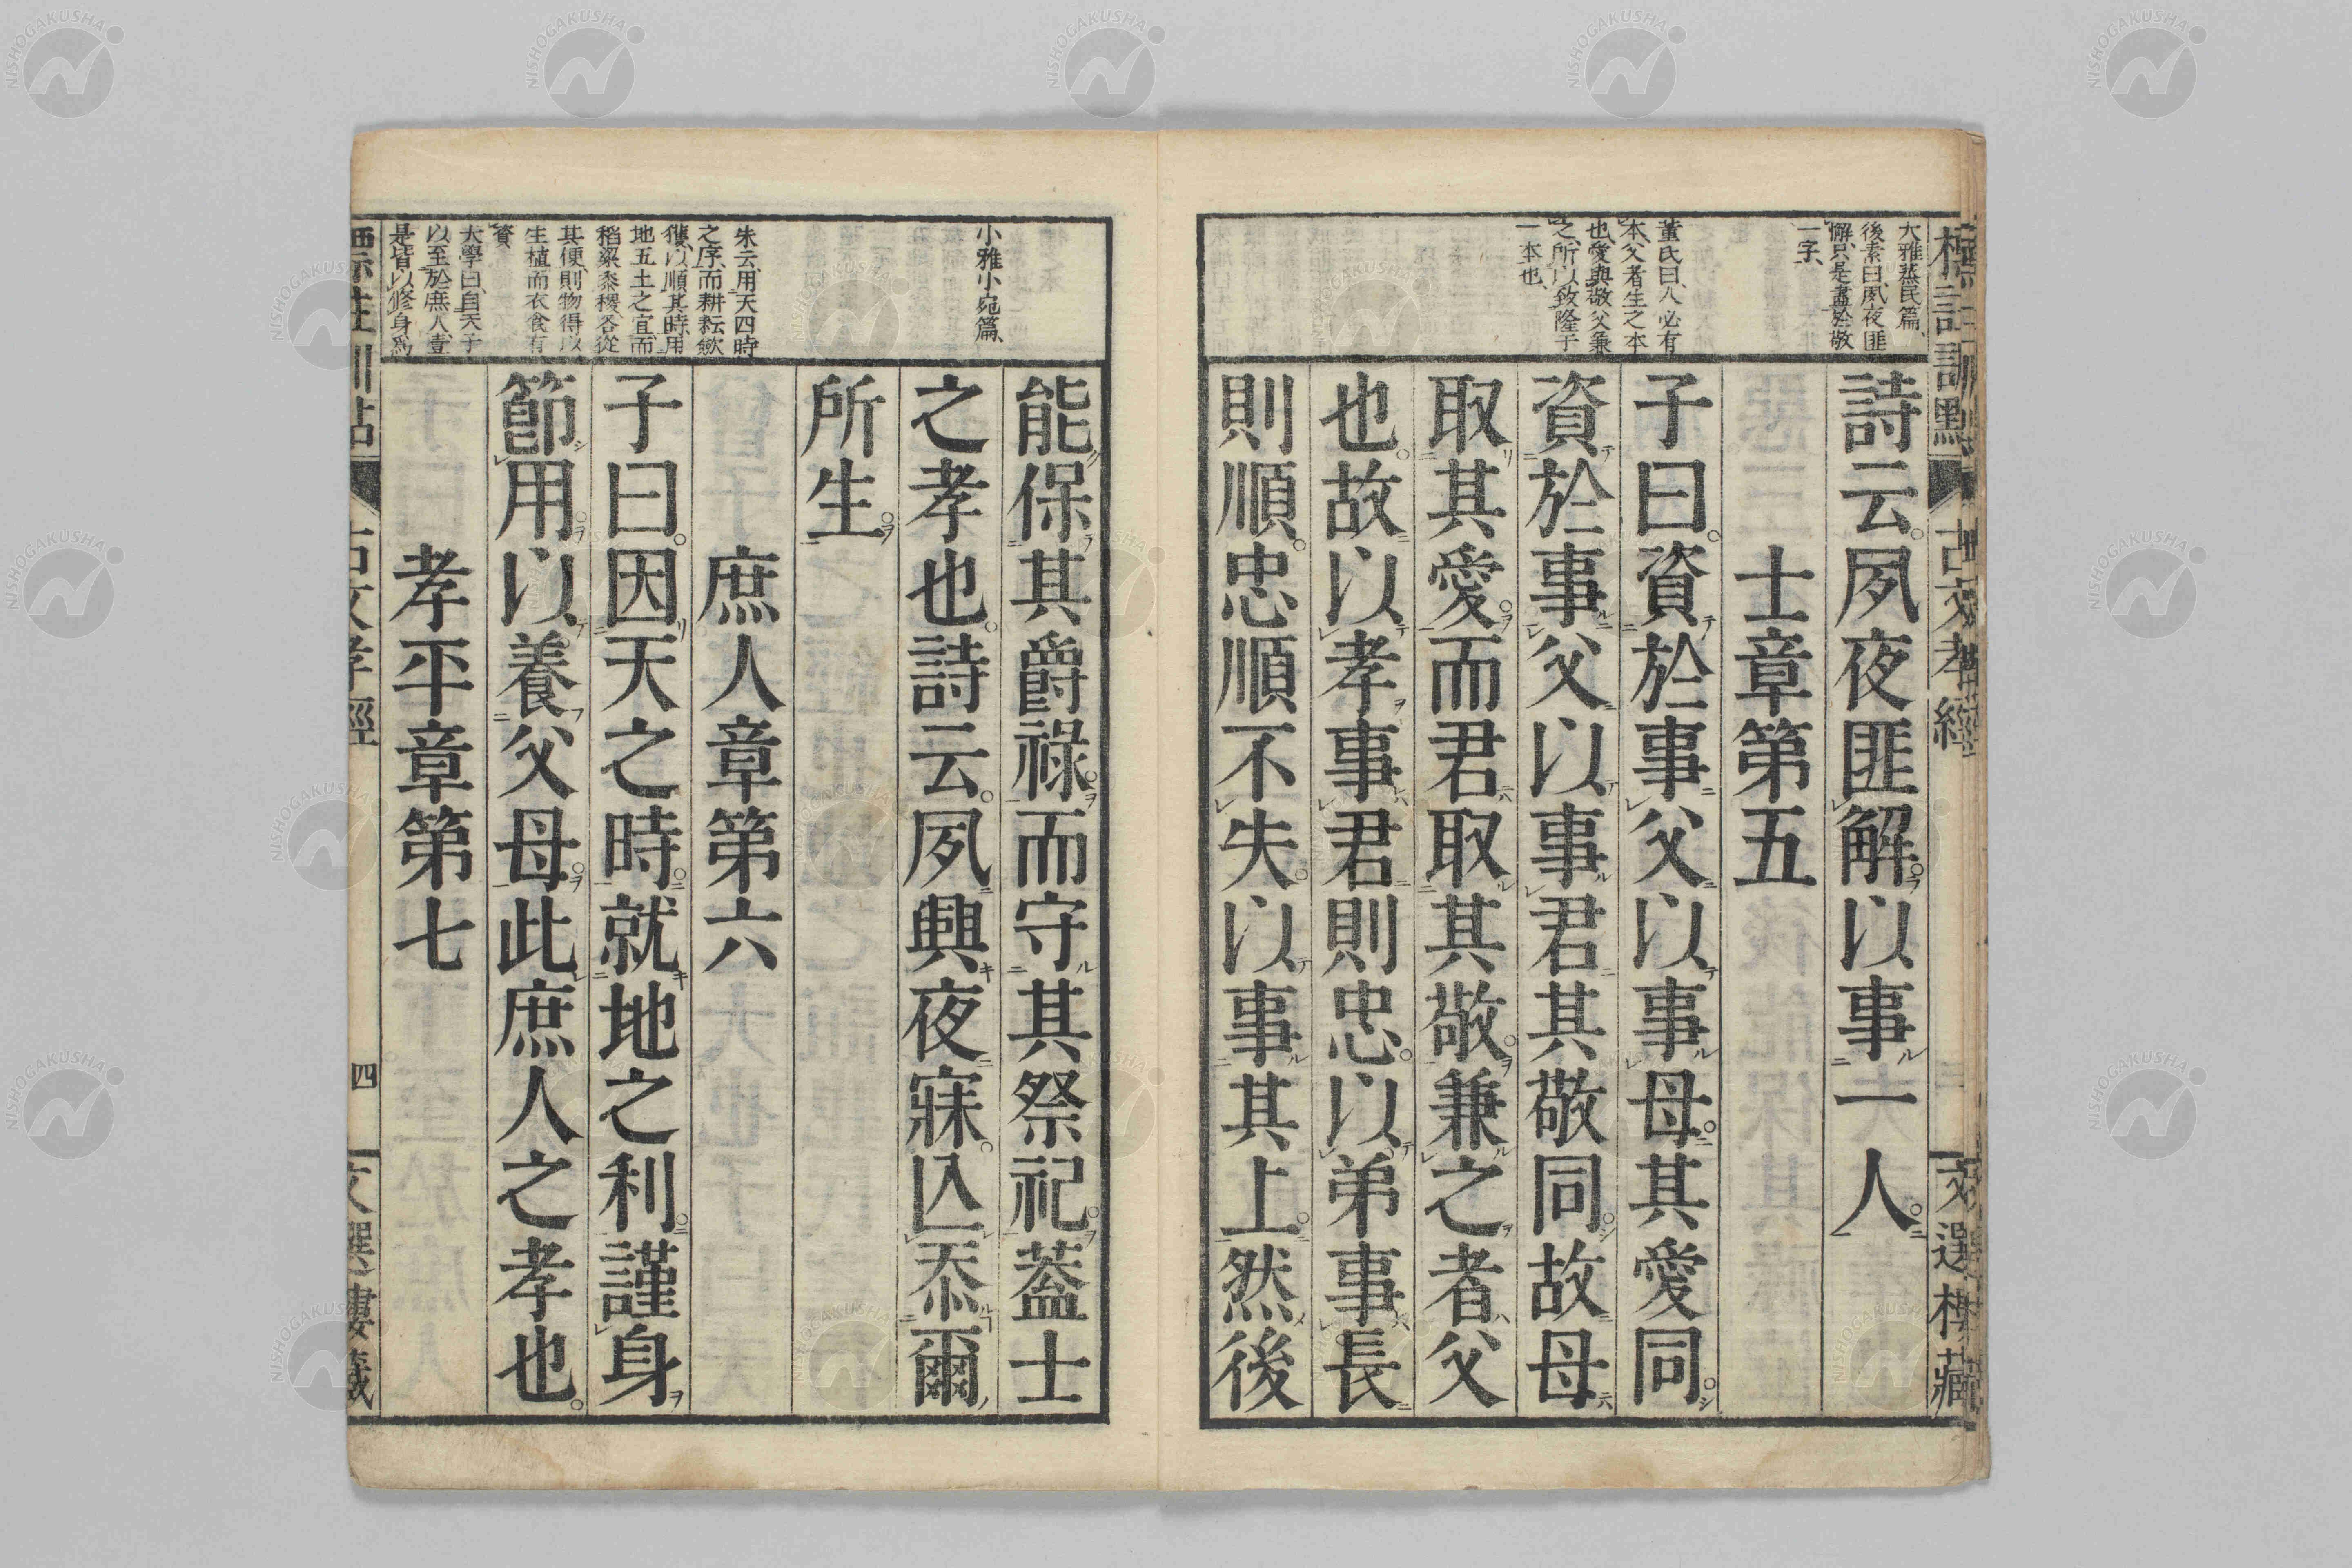 大雅蒸民篇、
後素曰、夙夜匪
懈、只是盡於敬
一字、
董氏曰、人必有
本、父者生之本
也、愛與敬父兼
之、所以致隆于
一本也、
詩云。夙夜匪解。以事一人。
士章第五
子曰。資於事父以事母。其愛同。
資於事父以事君。其敬同。故母
取其愛。而君取其敬。兼之者父
也。故以孝事君則忠。以弟事長
則順。忠順不失。以事其上。然後
小雅小宛篇、
朱云、用天四時
之序、而耕耘歛
穫、以順其時、用
地五土之宜、而
稻粱黍稷、各從
其便、則物得以
生植、而衣食有
資、
大學曰、自天子
以至於庶人、壹
是皆以修身爲
能保其爵祿。而守其祭祀。葢士
之孝也。詩云。夙興夜寐。亾忝爾
所生。
庶人章第六
子曰。因天之時。就地之利。謹身
節用。以養父母。此庶人之孝也。
孝平章第七
古文孝經
四
文選樓藏